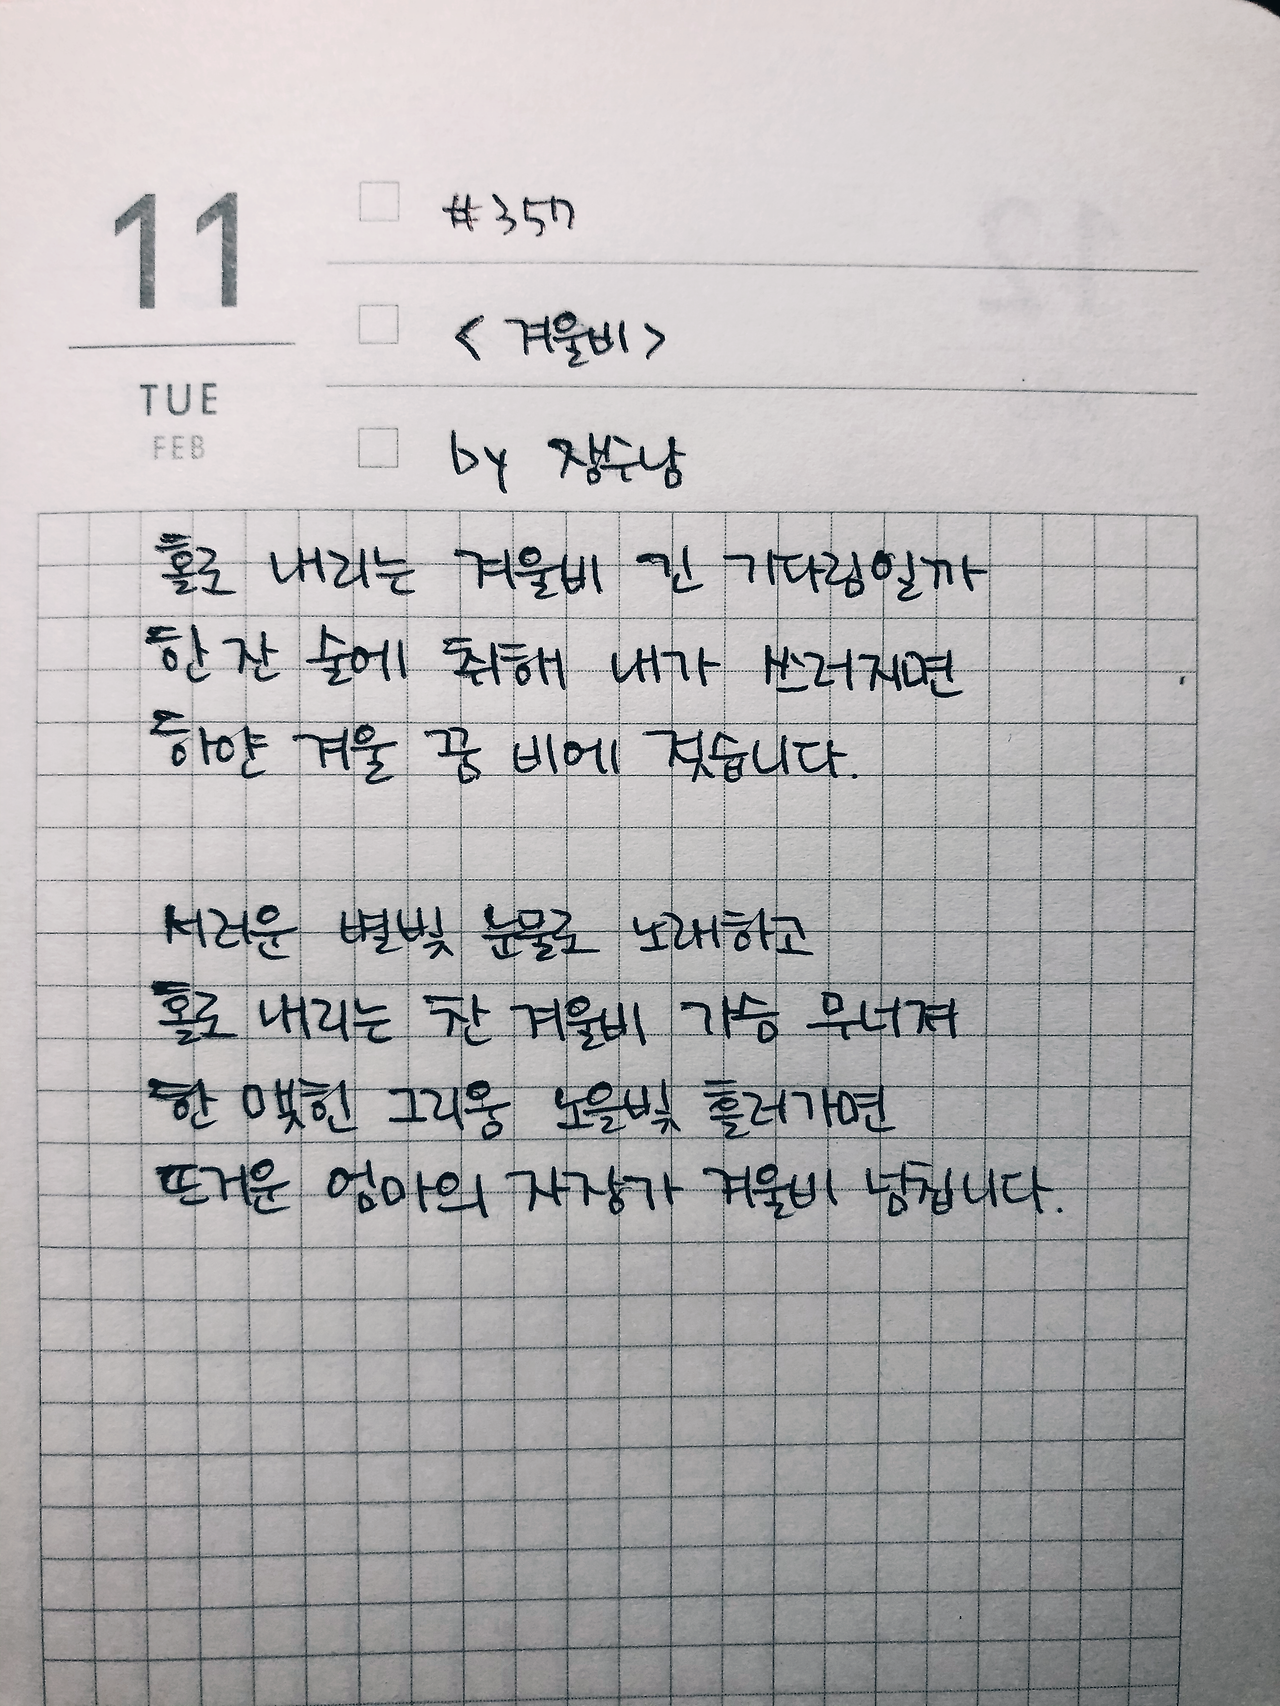 11
TUE
FEB
#357
<겨울비>
by 장수남
홀로 내리는 겨울비 긴 기다림일까
한 잔 술에 취해 내가 쓰러지면
하얀 겨울 꿈 비에 젖습니다.
서러운 별빛 눈물로 노래하고
홀로 내리는 찬 겨울비 가슴 무너져
한 맺힌 그리움 노을빛 흘러가면
뜨거운 엄마의 자장가 겨울비 넘칩니다.